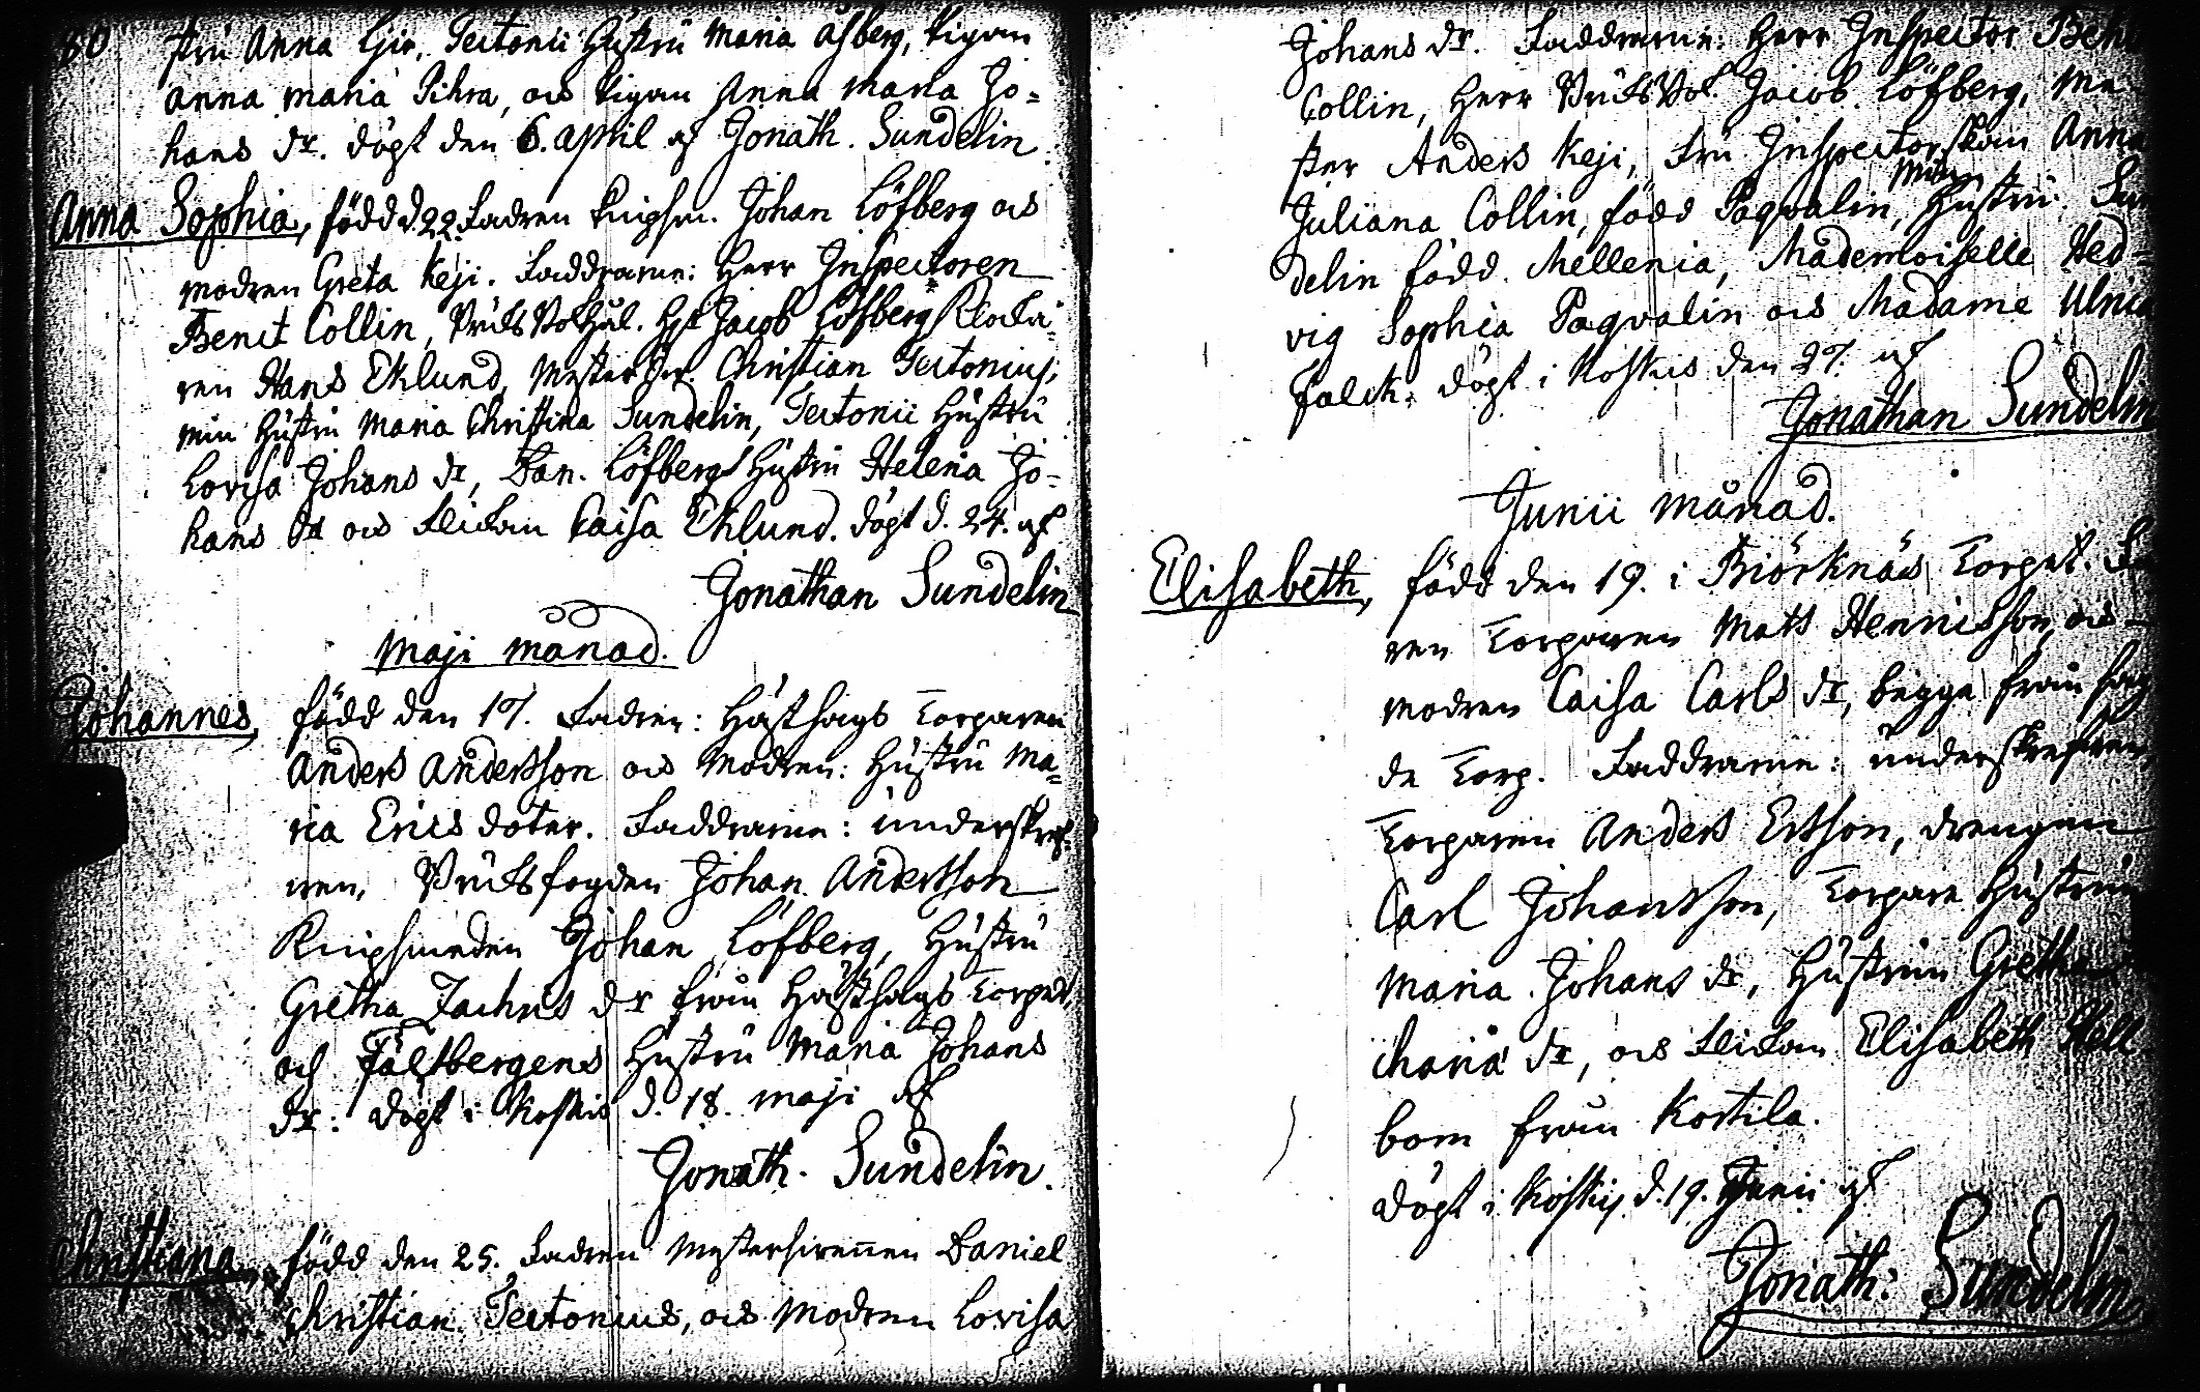 80
stru Anna Giö, Tectonii Hustru Maria Åsberg, Pigan
Anna Maria Pihra, och Pigan Anna Maria Jo=
hans dr. döpt den 6. April af Jonath. Sundelin.
Anna Sophia, född d. 22. Fadren Knipsm. Johan Löfberg och
modren Greta Keji. Faddrarne: Herr Inspectoren
Benct Collin, Bruks Jacob Löfberg Klocka=
ren Hans Eklund, Christian Tectonius,
min Hustru Maria Christina Sundelin, Tectonii Hustru
Lovisa Johans dr, Dan. Löfbergs Hustru Helena Jo=
hans dr och Flickan Caisa Eklund. döpt d. 24. af
Jonathan Sundelin
Maji månad.
Johannes, född den 17. Fadren: Hästhags Torparen
Anders Andersson och Modren: Hustru Ma=
ria Erics doter. Faddrarne: underskref=
ven, Bruksfogden Johan Andersson
Knipsmeden Johan Löfberg, Hustru
Gretha Zachris dr från Hästhags Torpet,
och Fältbergens Hustru Maria Johans
dr: döpt i Koskis d. 18. maji af
Jonath. Sundelin.
Christiana, född den 25. Fadren Mestersvennen Daniel
Christian Tectonius, och Modren Lovisa
Johans dr. Faddrarne: Herr Inspector
Collin, Herr Jacob Löfberg, Mä
ster Anders Keji, Fru Inspectorskan Anna
Juliana Collin, född Paqvalin, Min Hustru Sun
delin född Mellenia, Mademoiselle Hed=
vig Sophia Paqvalin och Madame Ulrica
Falck. döpt i Koskis den 27. af
Jonathan Sundelin
Junii månad.
Elisabeth, född den 19. i Björknäs Torpet. Fa
ren Torparen Mats Henricsson, och
modren Caisa Carls dr, bägge från sag
de Torp. Faddrarne: underskrefven,
Torparen Anders Ersson, drengen
Carl Johansson, Torpare Hustrun
Maria Johans dr, Hustrun Gretha
charia dr, och Flickan Elisabeth Hell
bom från Kostila.
döpt i Koskis d. 19. Junii af
Jonath: Sundelin